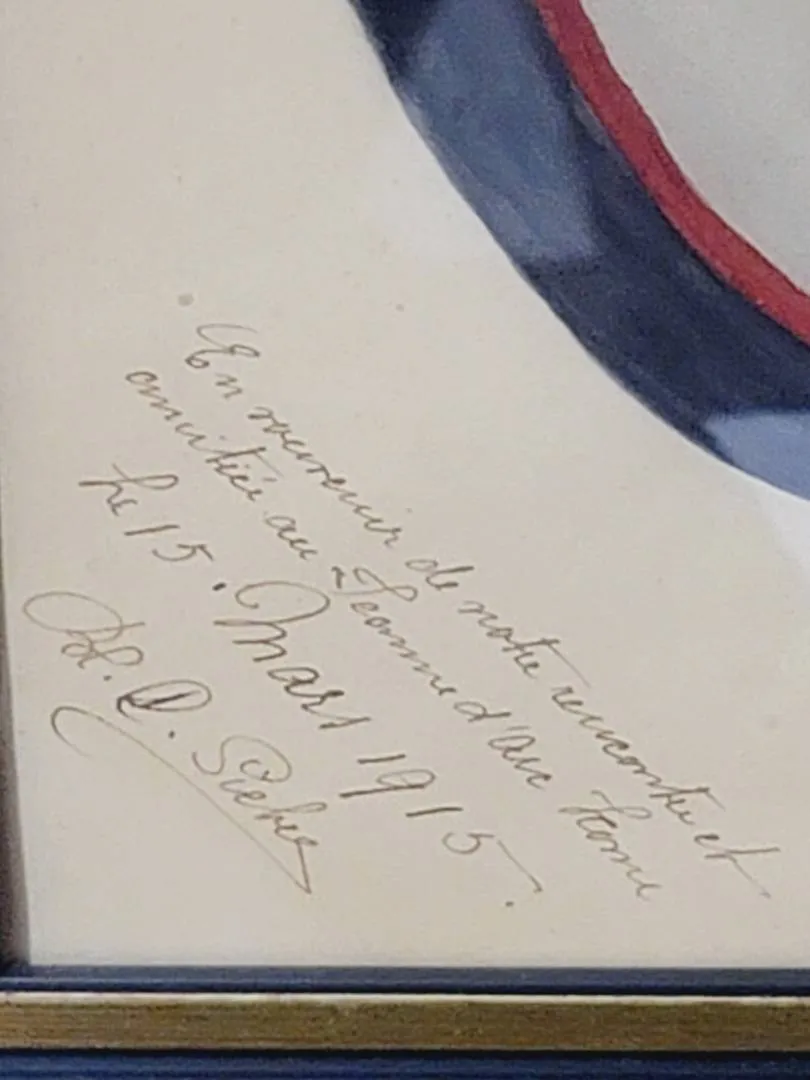 En souvenir de notre rencontre et
amitiée au Jeanne d'arc Home
Le 15. Mars 1915.
D.